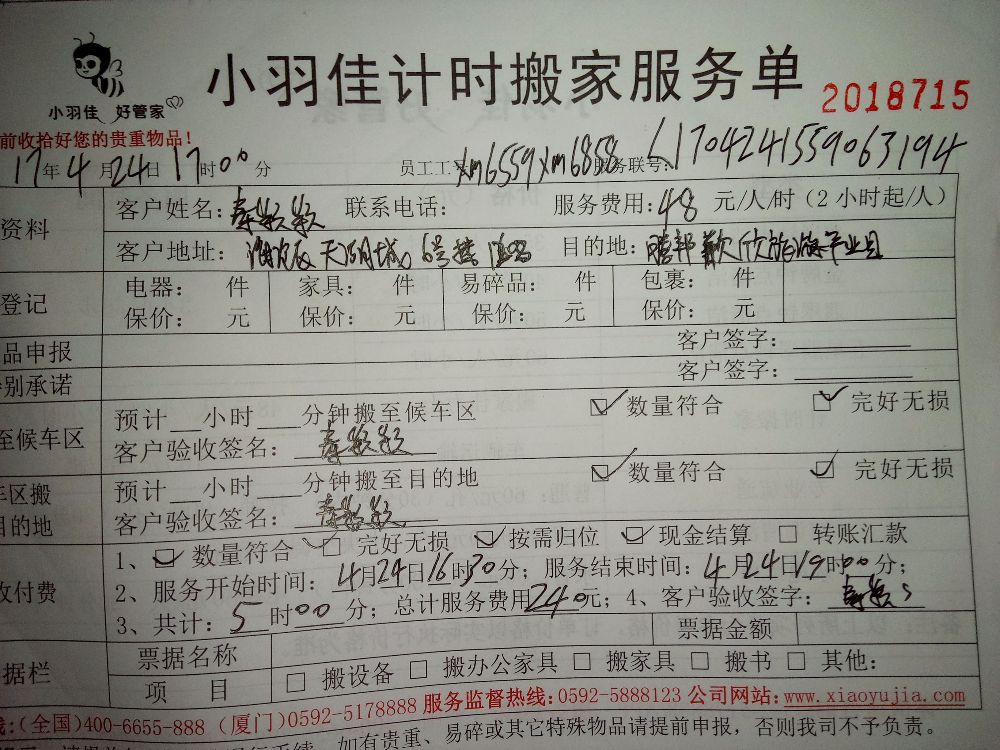 小羽佳计时搬家服务单
小羽佳 好管家
2018715
前收拾好您的贵重物品！
17年4月24日17时00分 员工工号 xm6559 xm6858 服务联号: 61704241559063194
资料 客户姓名: 联系电话: 服务费用:48 元/人/时（2小时起/人）
客户地址: 天湖城 6号楼 目的地:
登记 电器: 件 家具: 件 易碎品: 件 包裹: 件
保价: 元 保价: 元 保价: 元 保价: 元
品申报 客户签字:
别承诺 客户签字:
至候车区 预计 小时 分钟搬至候车区 ☑数量符合 ☑完好无损
客户验收签名:
车区搬 预计 小时 分钟搬至目的地 ☑数量符合 ☑完好无损
目的地 客户验收签名:
收付费 1、☑数量符合 ☑完好无损 ☑按需归位 ☑现金结算 □ 转账汇款
2、服务开始时间: 4月24日16时30分; 服务结束时间: 4月24日19时00分;
3、共计: 5时00分; 总计服务费用240元; 4、客户验收签字:
据栏 票据名称 票据金额
项 目 □ 搬设备 □ 搬办公家具 □ 搬家具 □ 搬书 □ 其他:
线:(全国)400-6655-888 (厦门)0592-5178888 服务监督热线:0592-5888123 公司网站:www.xiaoyujia.com
如有贵重、易碎或其它特殊物品请提前申报，否则我司不予负责。